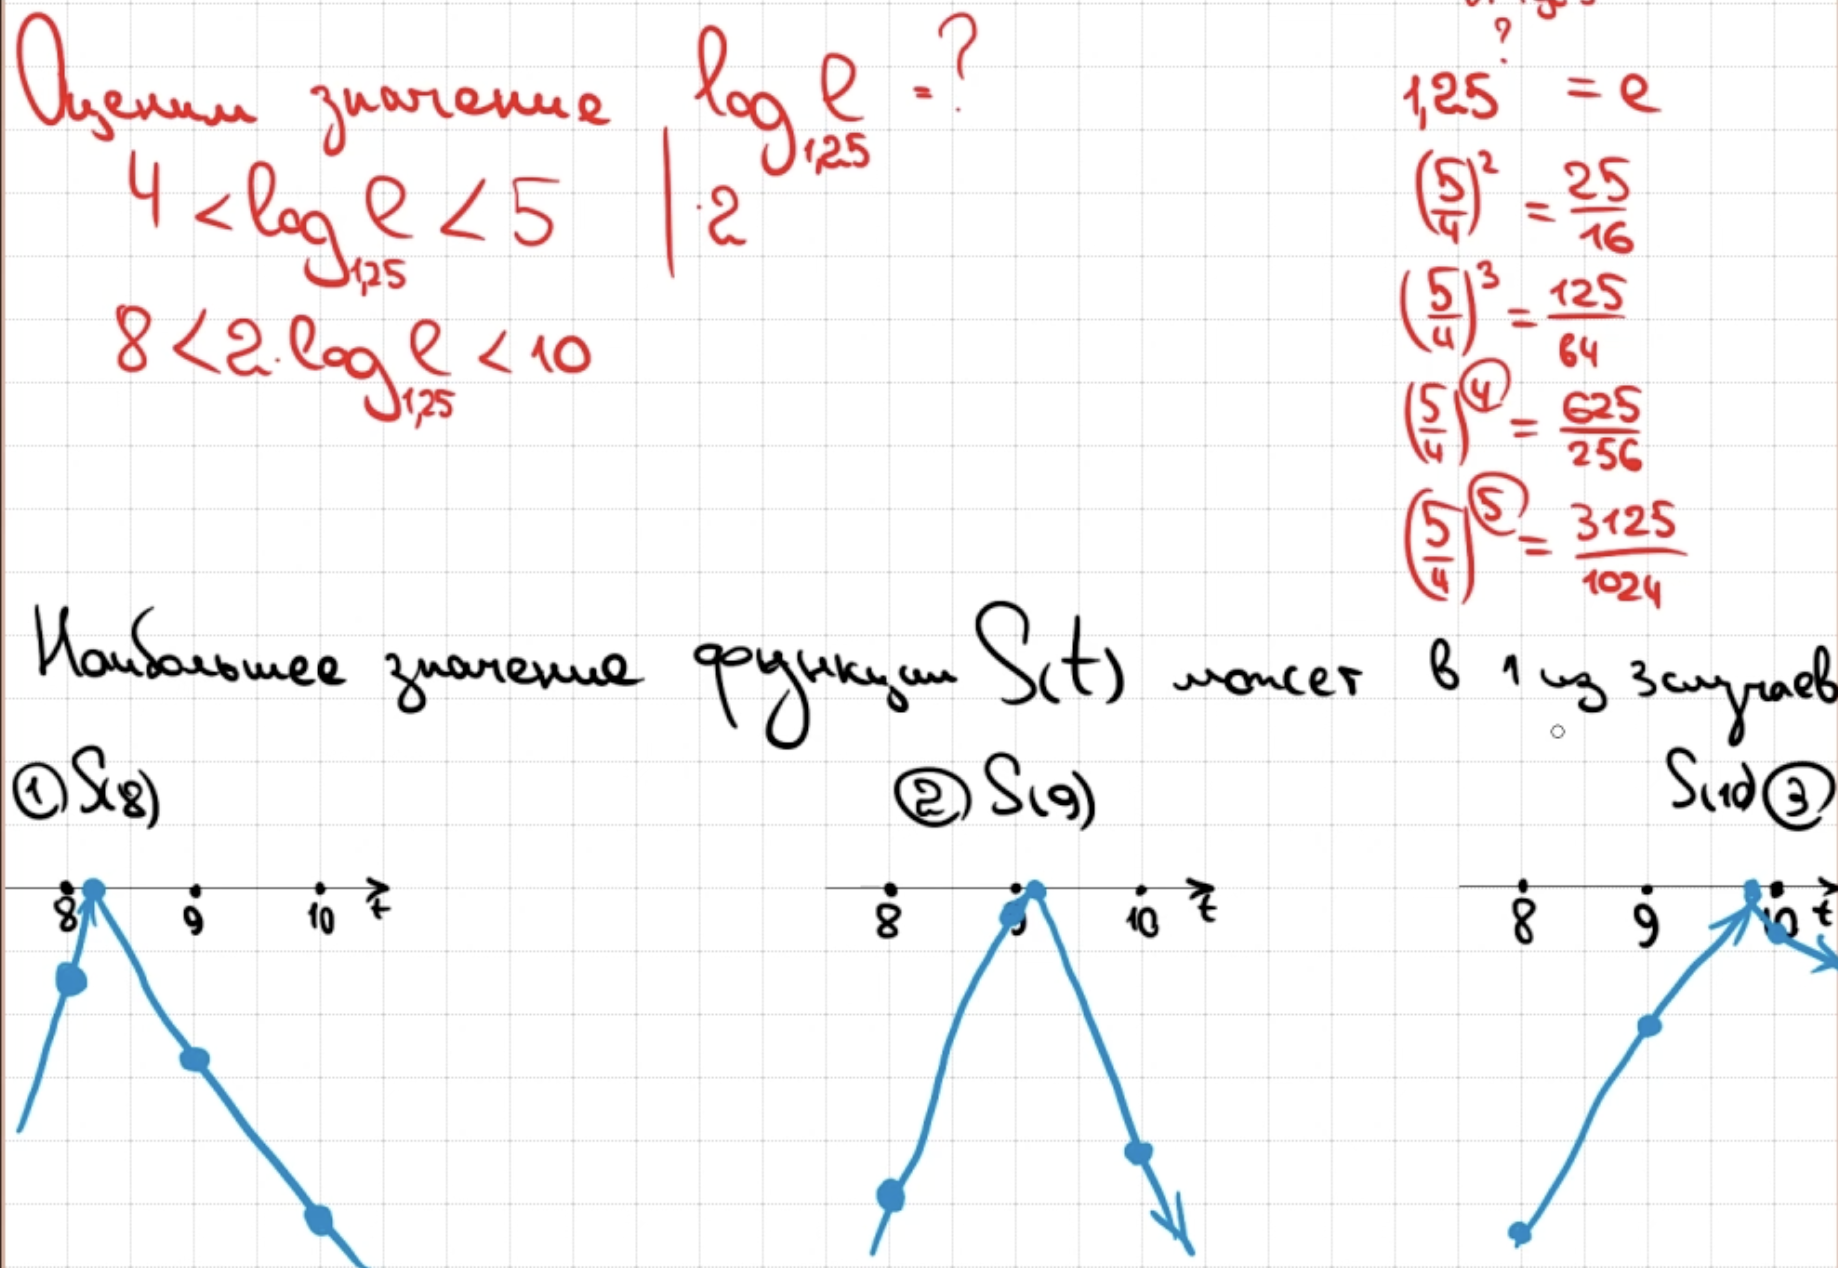 Оценим значение log₁,₂₅ e = ?
4 < log₁,₂₅ e < 5 | ·2
8 < 2·log₁,₂₅ e < 10
1,25^? = e
(5/4)² = 25/16
(5/4)³ = 125/64
(5/4)^④ = 625/256
(5/4)^⑤ = 3125/1024
Наибольшее значение функции S(t) может в 1 из 3 случаев
① S(8)
8 9 10 t
② S(9)
8 9 10 t
S(10) ③
8 9 10 t